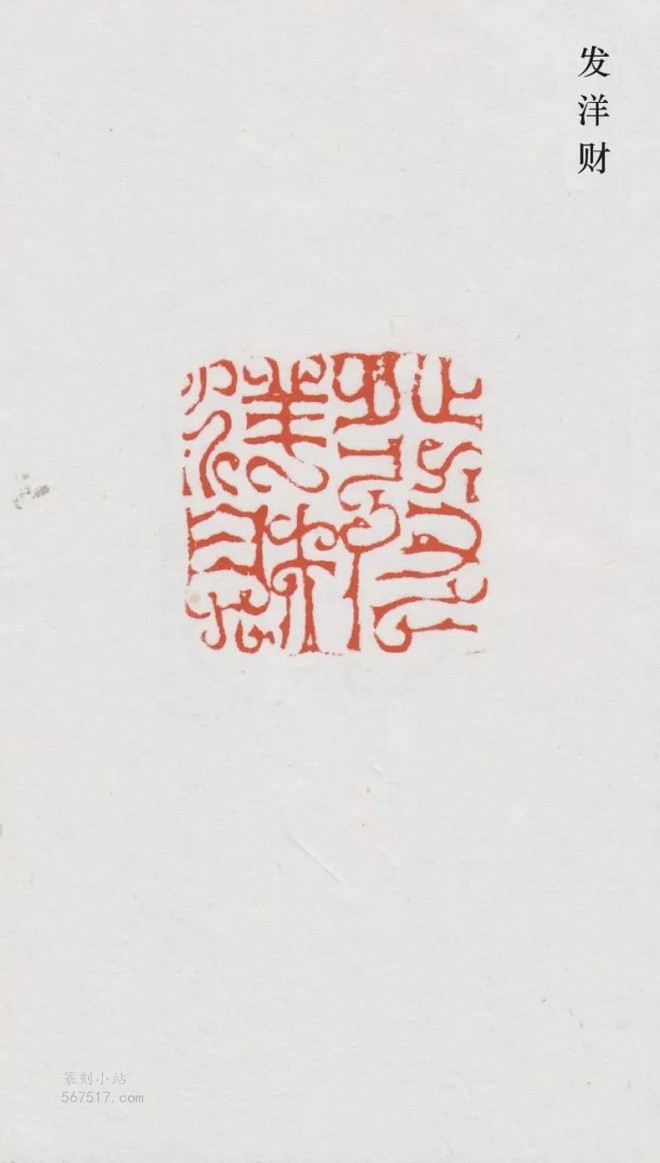 发洋财
發洋財
篆刻小站
567517.com